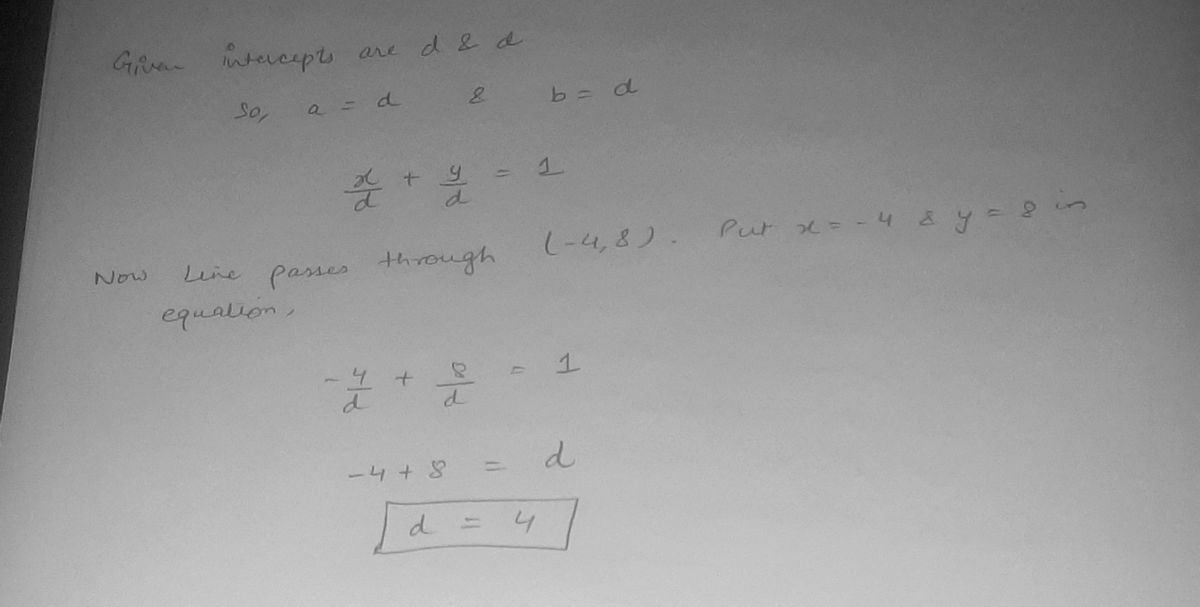 Given intercepts are d & d
So, a = d & b = d
x/d + y/d = 1
Now Line passes through (-4,8). Put x = -4 & y = 8 in
equation,
-4/d + 8/d = 1
-4 + 8 = d
d = 4